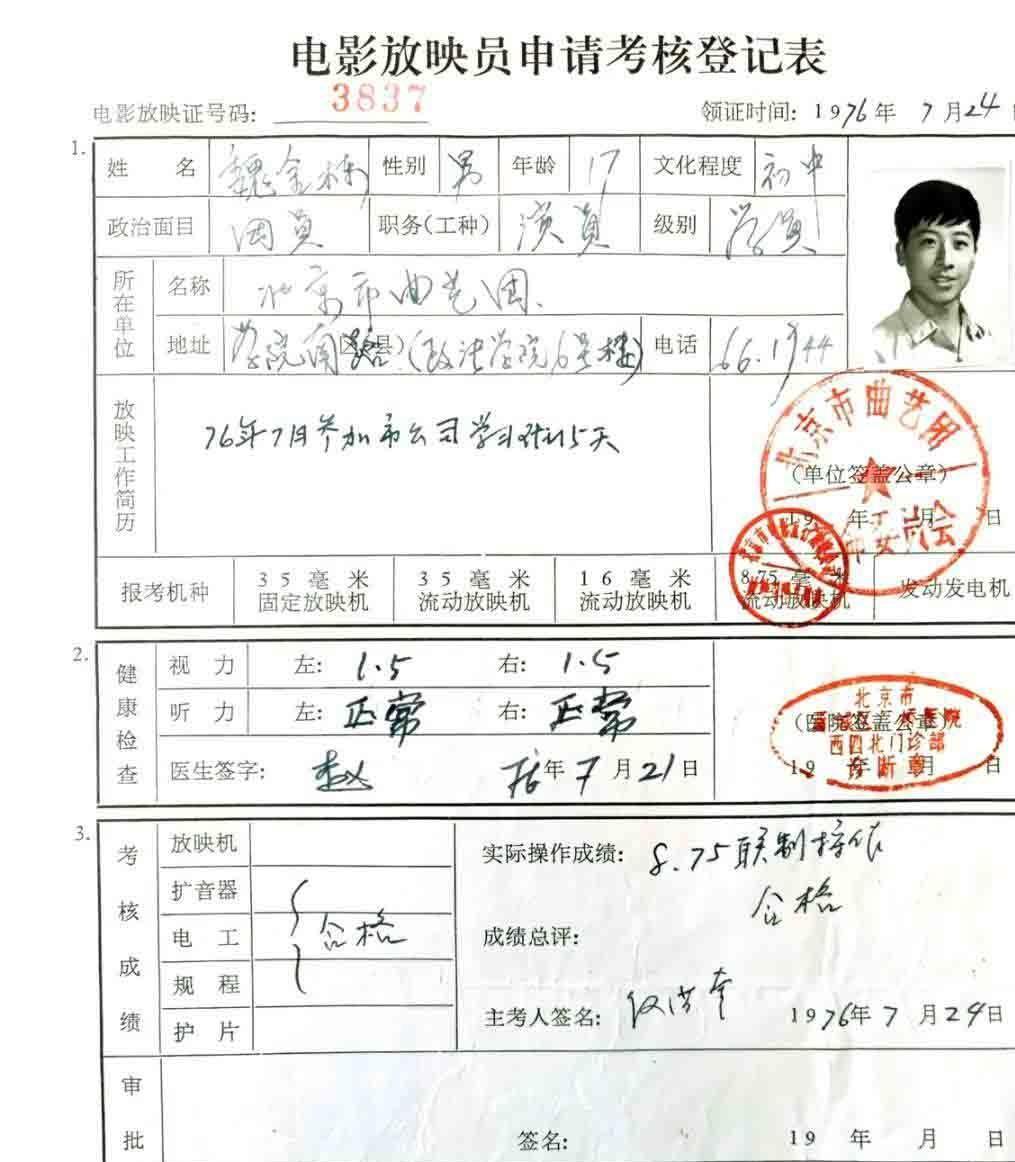 电影放映员申请考核登记表
电影放映证号码: 3837 领证时间: 1976年 7月24日
1.
姓名 魏金栋 性别 男 年龄 17 文化程度 初中
政治面目 团员 职务(工种) 演员 级别 学员
所在单位 名称 北京市曲艺团.
地址 学院南路 区(县) (政法学院6号楼) 电话 66.1744
放映工作简历 76年7月参加市公司学习班15天
北京市曲艺团
(单位签盖公章)
19 年 月 日
报考机种 35毫米固定放映机 35毫米流动放映机 16毫米流动放映机 8.75毫米流动放映机 发动发电机
2.
健康检查
视力 左: 1.5 右: 1.5
听力 左: 正常 右: 正常
医生签字: 赵 76年7月21日
(医院签盖公章)
北京市
西四北门诊部
诊断章
19 年 月 日
3.
考核成绩
放映机
扩音器
电工 合格
规程
护片
实际操作成绩: 8.75联制
合格
成绩总评:
主考人签名: 1976年7月24日
审批
签名: 19 年 月 日